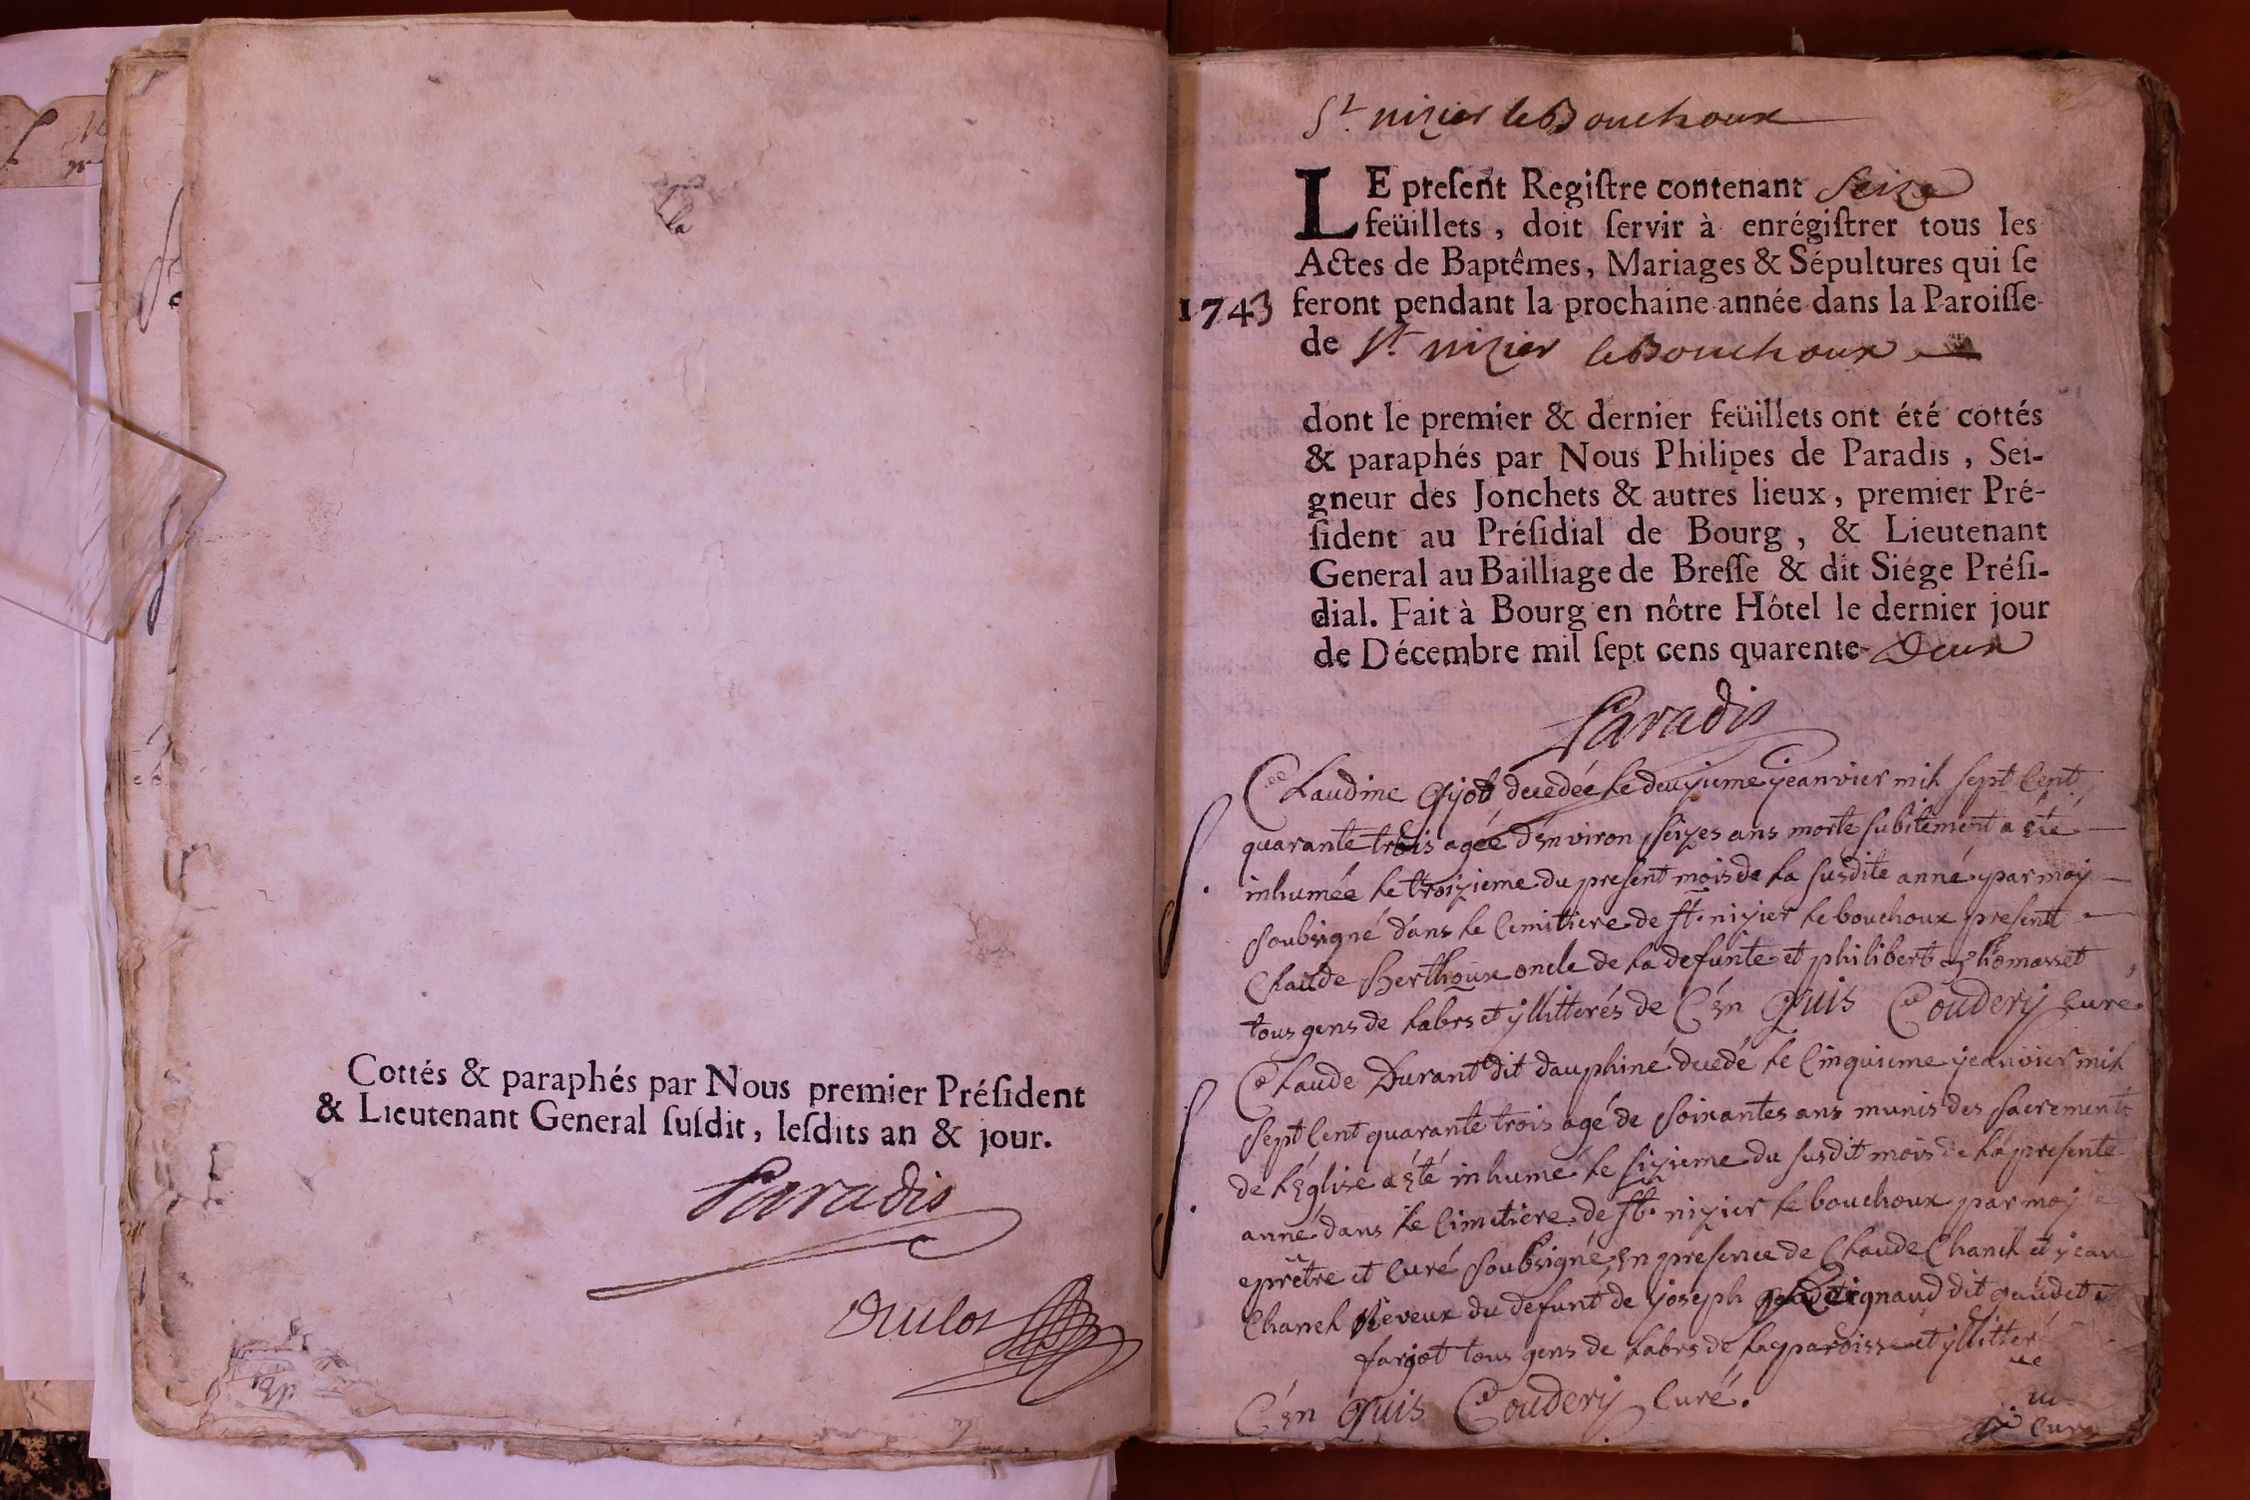 Cottés & paraphés par Nous premier Préſident
& Lieutenant General ſuſdit, leſdits an & jour.
Paradis
St. nizier leBouchoux
LE preſent Regiſtre contenant Seize
feüillets, doit ſervir à enrégiſtrer tous les
Actes de Baptêmes, Mariages & Sépultures qui ſe
1743 feront pendant la prochaine année dans la Paroiſſe
de St. nizier leBouchoux
dont le premier & dernier feüillets ont été cottés
& paraphés par Nous Philipes de Paradis, Sei-
gneur des Jonchets & autres lieux, premier Pré-
ſident au Préſidial de Bourg, & Lieutenant
General au Bailliage de Breſſe & dit Siége Préſi-
dial. Fait à Bourg en nôtre Hôtel le dernier jour
de Décembre mil ſept cens quarente- Deux
Paradis
Claudine decedée le deuzieme jeanvier mil sept cent
quarante trois agée d'environ seizes ans morte subitement a esté
inhumée le troizieme du present mois de la susdite anné par moy
soubsigné dans le cimitiere de st. nizier le bouchoux present
Claude Berthoux oncle de la defunte et philibert Thomasset
tous gens de labrs et yllitterés de C'en Quis Couderÿ curé
Claude Durant dit dauphiné decedé le cinquieme jeanvier mil
sept cent quarante trois agé de soixantes ans munis des sacrements
de l'Eglise a esté inhumé le sizieme du susdit mois de la presente
anné dans le cimetiere de st. nizier le bouchoux par moy
prêtre et curé soubsigné en presence de Claude Chanel et jean
Chanel Neveux du defunt de joseph dit gaudet et
farjot tous gens de labrs de la paroisse et yllitteré
C'en Quis Couderÿ curé.